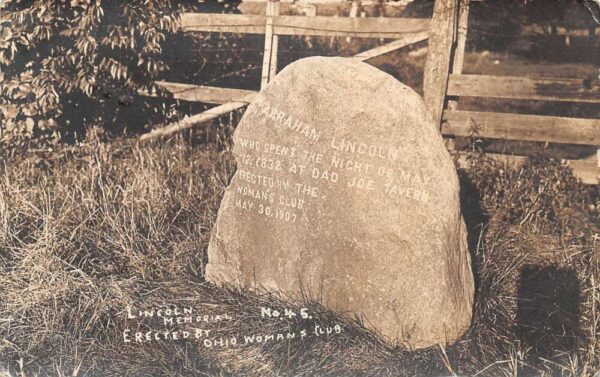 ABRAHAM LINCOLN
WHO SPENT THE NIGHT OF MAY
12, 1832 AT DAD JOE TAVERN
ERECTED BY THE
WOMAN'S CLUB
MAY 30, 1907
LINCOLN No. 45.
MEMORIAL
ERECTED BY OHIO WOMAN'S CLUB